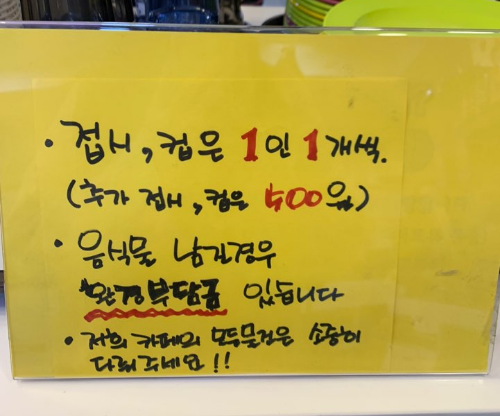 · 접시, 컵은 1인 1개씩.
(추가 접시, 컵은 500원)
· 음식물 남긴경우
환경부담금 있습니다
· 저희 카페의 모두물건은 소중히
다뤄주세요!!